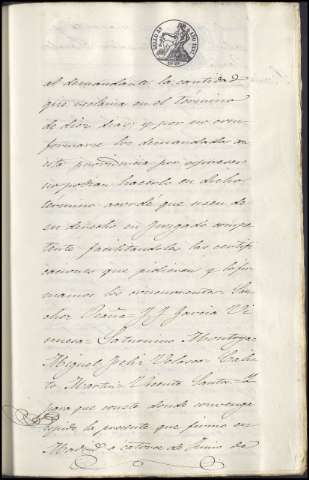 al demandante la cantidad
que reclama en el término
de diez dias y por no con
formarse los demandados con
esta providencia por espresar
no podian hacerlo en dicho
termino acordó que usen de
su derecho en juzgado compe
tente facilitandoles las certifi
caciones que pidieren y lo fir
maron los concurrentes
Peña = J. J. Garcia Vi
= Saturnino Montoya
Miguel Felix Velasco = Calis
to Martin = Vicente Santa
para que conste donde convenga
espido la presente que firmo en
Madrid a catorce de Junio de